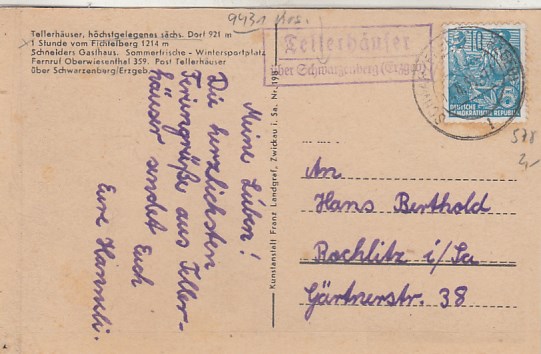 9431 Krs.
Tellerhäuser, höchstgelegenes sächs. Dorf 921 m
1 Stunde vom Fichtelberg 1214 m
Schneiders Gasthaus. Sommerfrische - Wintersportplatz
Fernruf Oberwiesenthal 359. Post Tellerhäuser
über Schwarzenberg/Erzgeb.
Tellerhäuser
über Schwarzenberg (Erzgeb)
10
DEUTSCHE
DEMOKRATISCHE REPUBLIK
578
2,-
Meine Lieben!
Die herzlichsten
Feriengrüße aus Teller-
häuser sendet Euch
Eure Hanneli.
Kunstanstalt Franz Landgraf, Zwickau i. Sa. Nr. 196
An
Hans Berthold
Rochlitz i/Sa
Gärtnerstr. 38